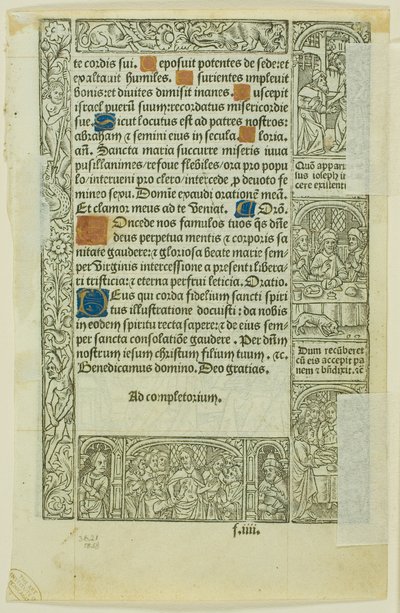 te cordis sui. Deposuit potentes de sede: et
exaltauit humiles. Esurientes impleuit
bonis: et diuites dimisit inanes. Suscepit
israel puerū suum: recordatus misericordie
sue. Sicut locutus est ad patres nostros:
abraham ⁊ semini eius in secula. Gloria.
añ. Sancta maria succurre miseris iuua
pusillanimes/ refoue flebiles/ ora pro popu
lo/ interueni pro clero/ intercede p̱ deuoto fe
mineo sexu. Domīe exaudi orationē meā.
Et clamor meus ad te veniat. Orō.
Concede nos famulos tuos q̄s dñe
deus perpetua mentis ⁊ corporis sa
nitate gaudere: ⁊ gloriosa beate marie sem
per virginis intercessione a presenti libera
ri tristicia: ⁊ eterna perfrui leticia. Oratio.
Deus qui corda fidelium sancti spiri
tus illustratione docuisti: da nobis
in eodem spiritu recta sapere: ⁊ de eius sem
per sancta consolatiōe gaudere. Per dñm
nostrum iesum christum filium tuum. ⁊c.
Benedicamus domino. Deo gratias.
Ad completorium.
Quō appar
ius ioseph i
cere exilenti
Dum recūberet
cū eis accepit pa
nem ⁊ bñdixit. ⁊c
f.iiii.